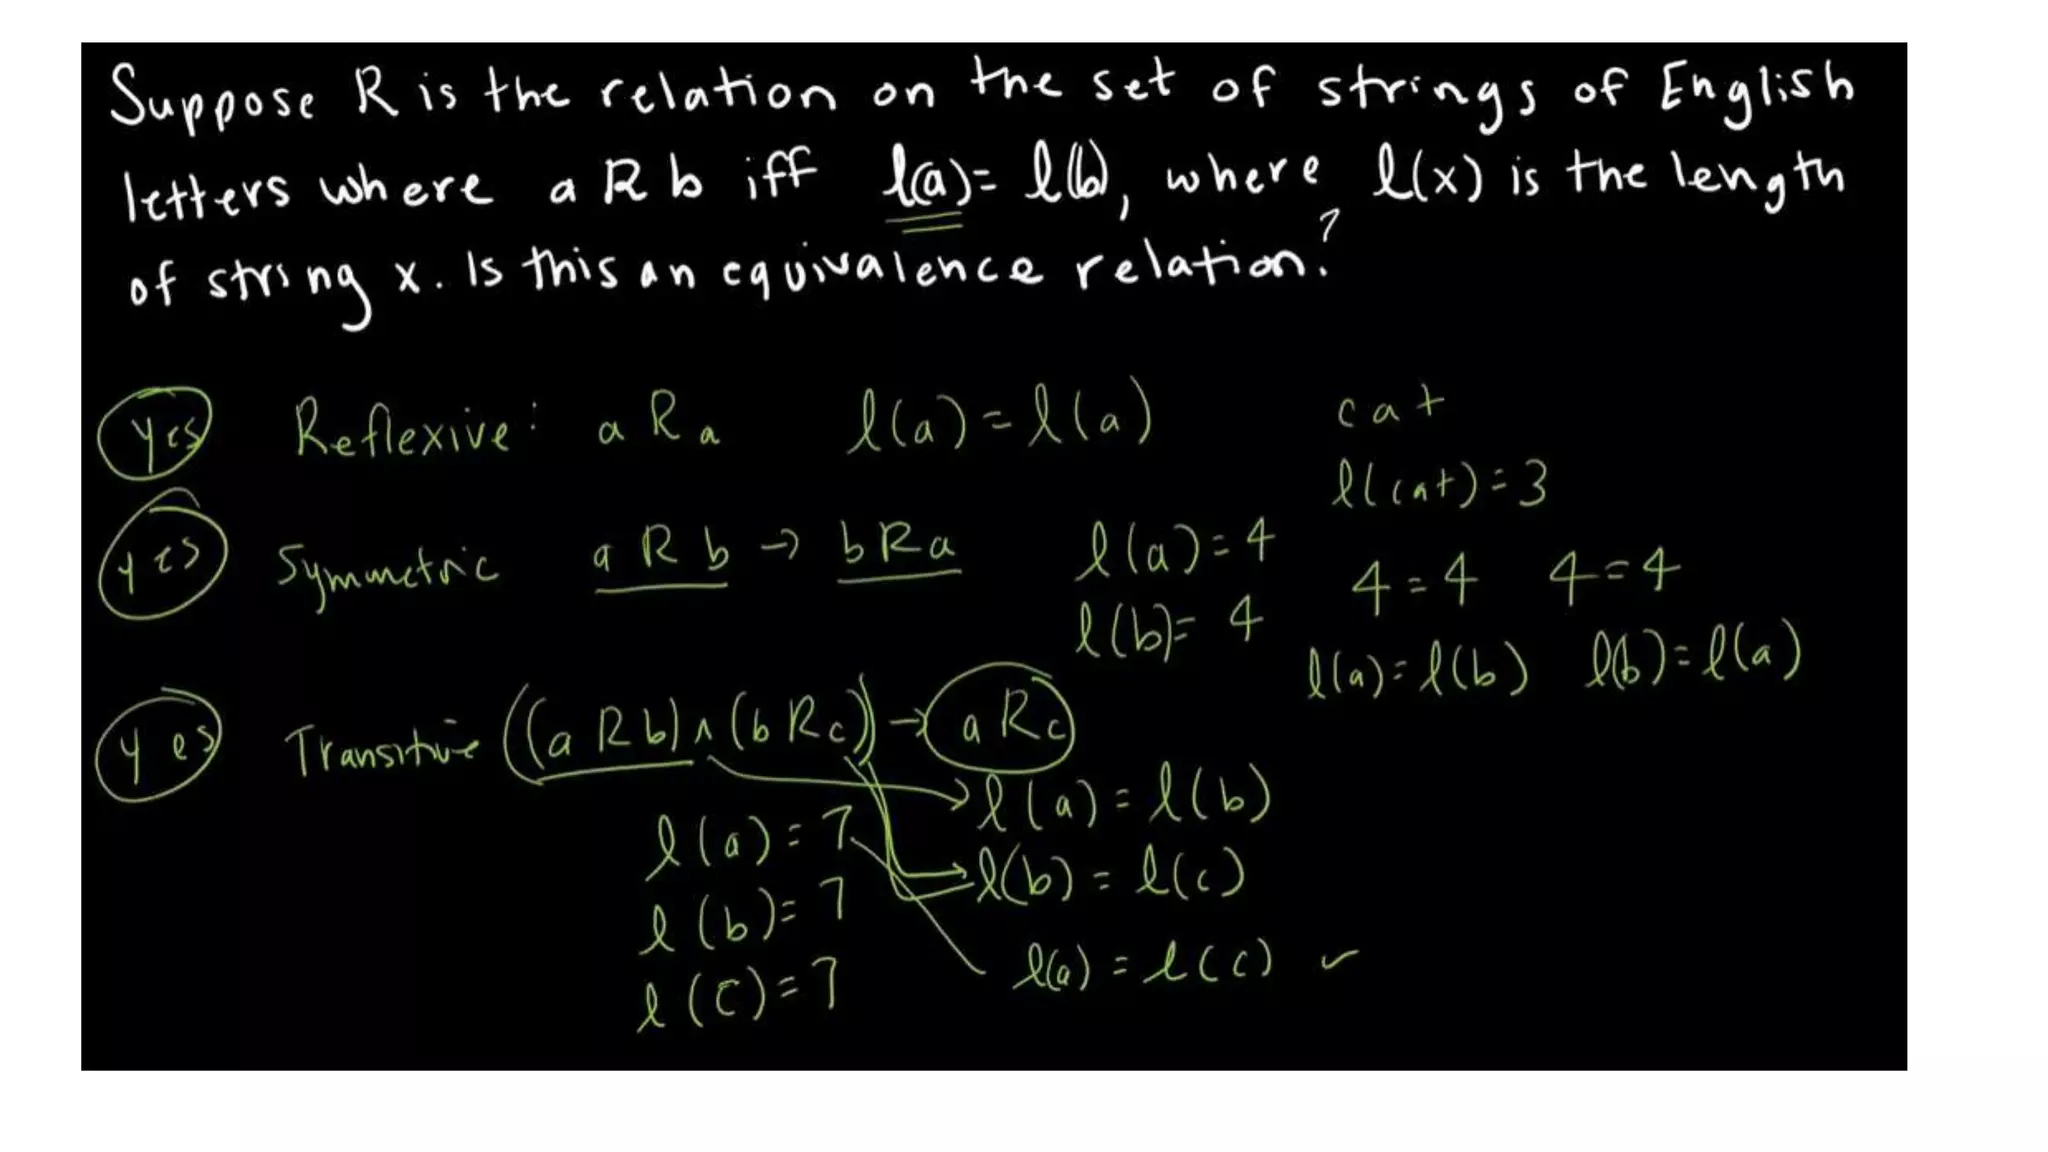 Suppose R is the relation on the set of strings of English
letters where a R b iff l(a)= l(b), where l(x) is the length
of string x. Is this an equivalence relation?
yes Reflexive: a R a l(a) = l(a) cat
l(cat) = 3
yes Symmetric a R b → b R a l(a) = 4 4 = 4 4 = 4
l(b) = 4 l(a) = l(b) l(b) = l(a)
yes Transitive ((a R b) ∧ (b R c)) → a R c
l(a) = 7 l(a) = l(b)
l(b) = 7 l(b) = l(c)
l(c) = 7 l(a) = l(c) ✓